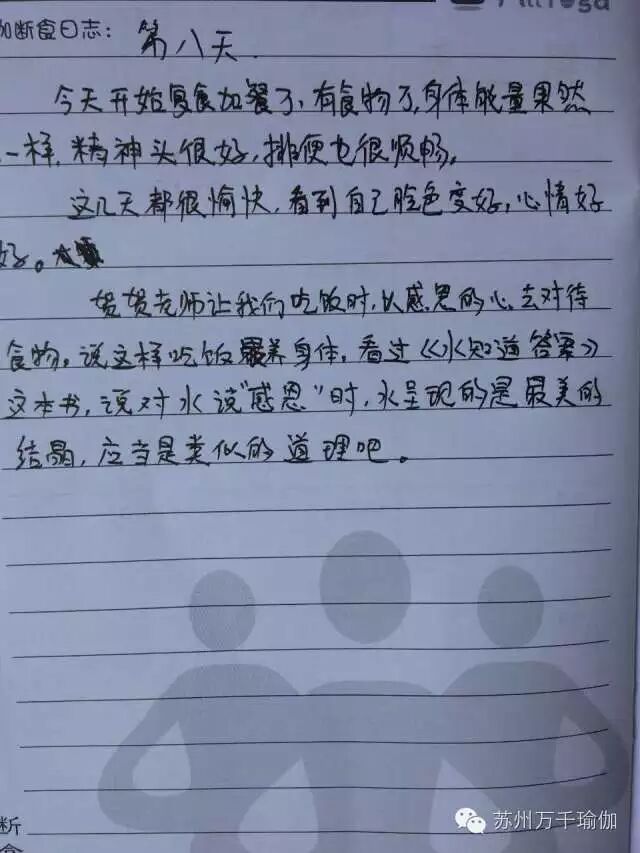 Yoga
加断食日志： 第八天.
今天开始复食加餐了，有食物了，身体能量果然
一样，精神头很好，排便也很顺畅。
这几天都很愉快，看到自己脸色变好，心情好
好。
贺贺老师让我们吃饭时，以感恩的心去对待
食物。说这样吃饭最养身体，看过《水知道答案》
这本书，说对水说“感恩”时，水呈现的是最美的
结晶，应当是类似的道理吧。
断
食
苏州万千瑜伽